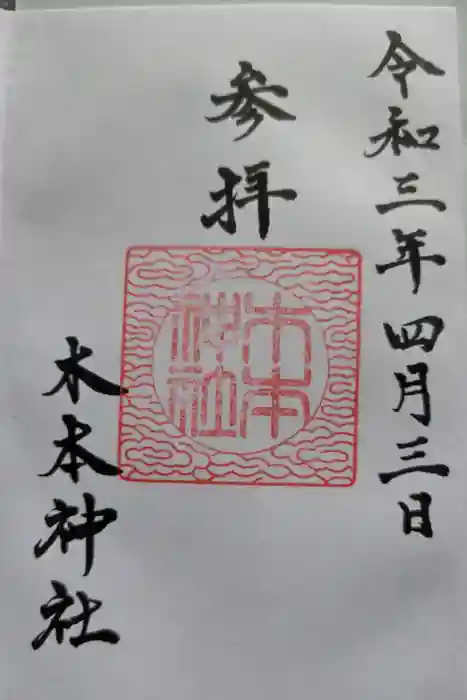 令和三年四月三日
参拝
木本神社
木本神社